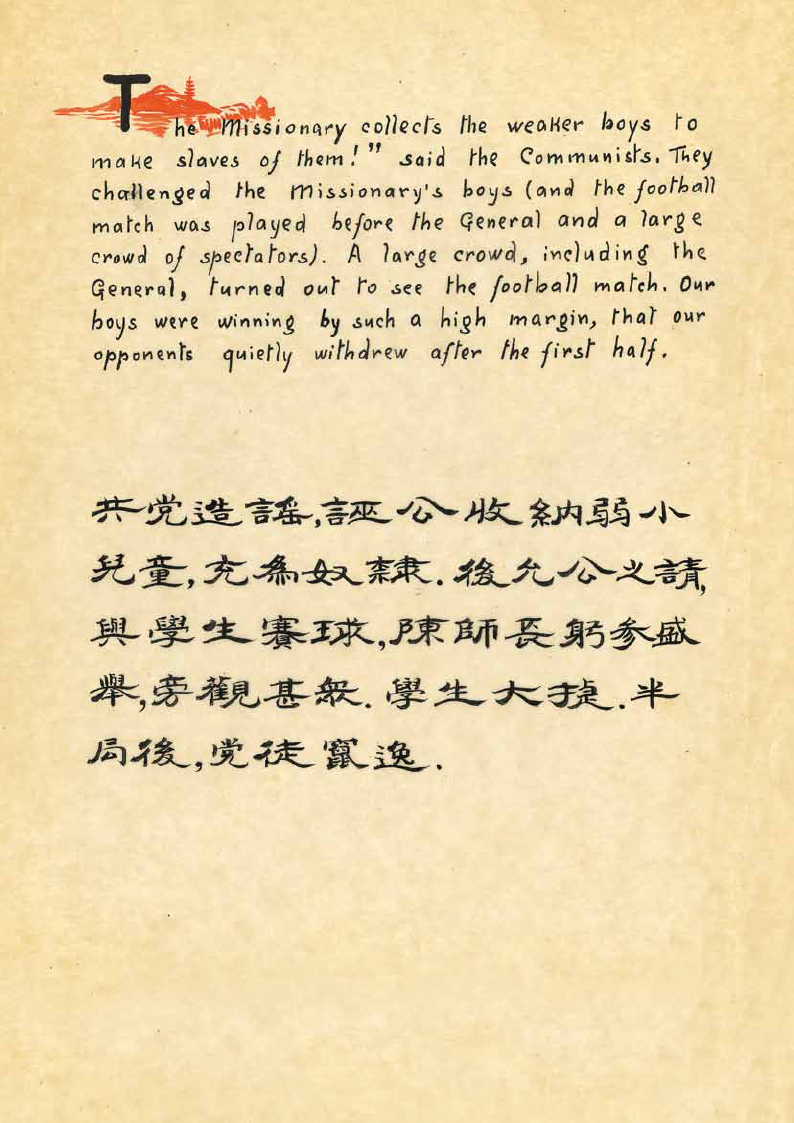 The Missionary collects the weaker boys to
make slaves of them!" said the Communists. They
challenged the Missionary's boys (and the football
match was played before the General and a large
crowd of spectators). A large crowd, including the
General, turned out to see the football match. Our
boys were winning by such a high margin, that our
opponents quietly withdrew after the first half.
共党造謠,誣公收納弱小
兒童,充為奴隸.後允公之請,
與學生賽球,陳師長躬参盛
舉,旁觀甚衆.學生大捷.半
局後,党徒竄逸.